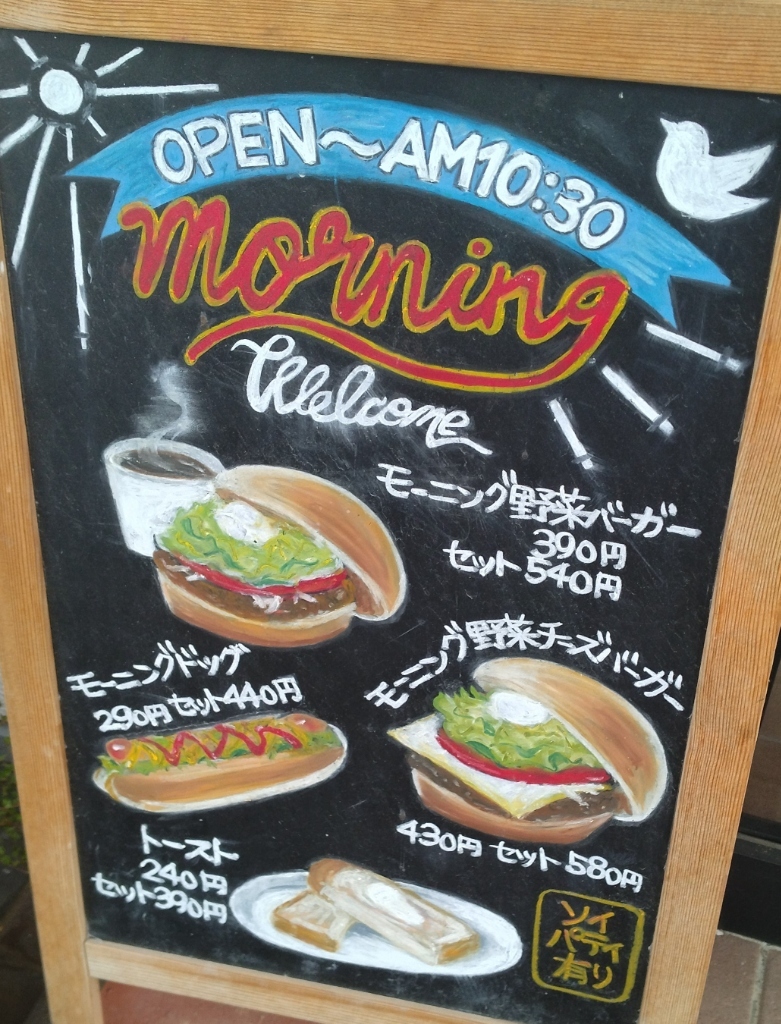 OPEN〜AM10:30
morning
Welcome
モーニング野菜バーガー
390円
セット540円
モーニング野菜チーズバーガー
430円 セット580円
モーニングドッグ
290円セット440円
トースト
240円
セット390円
ソイ
パティ
有り